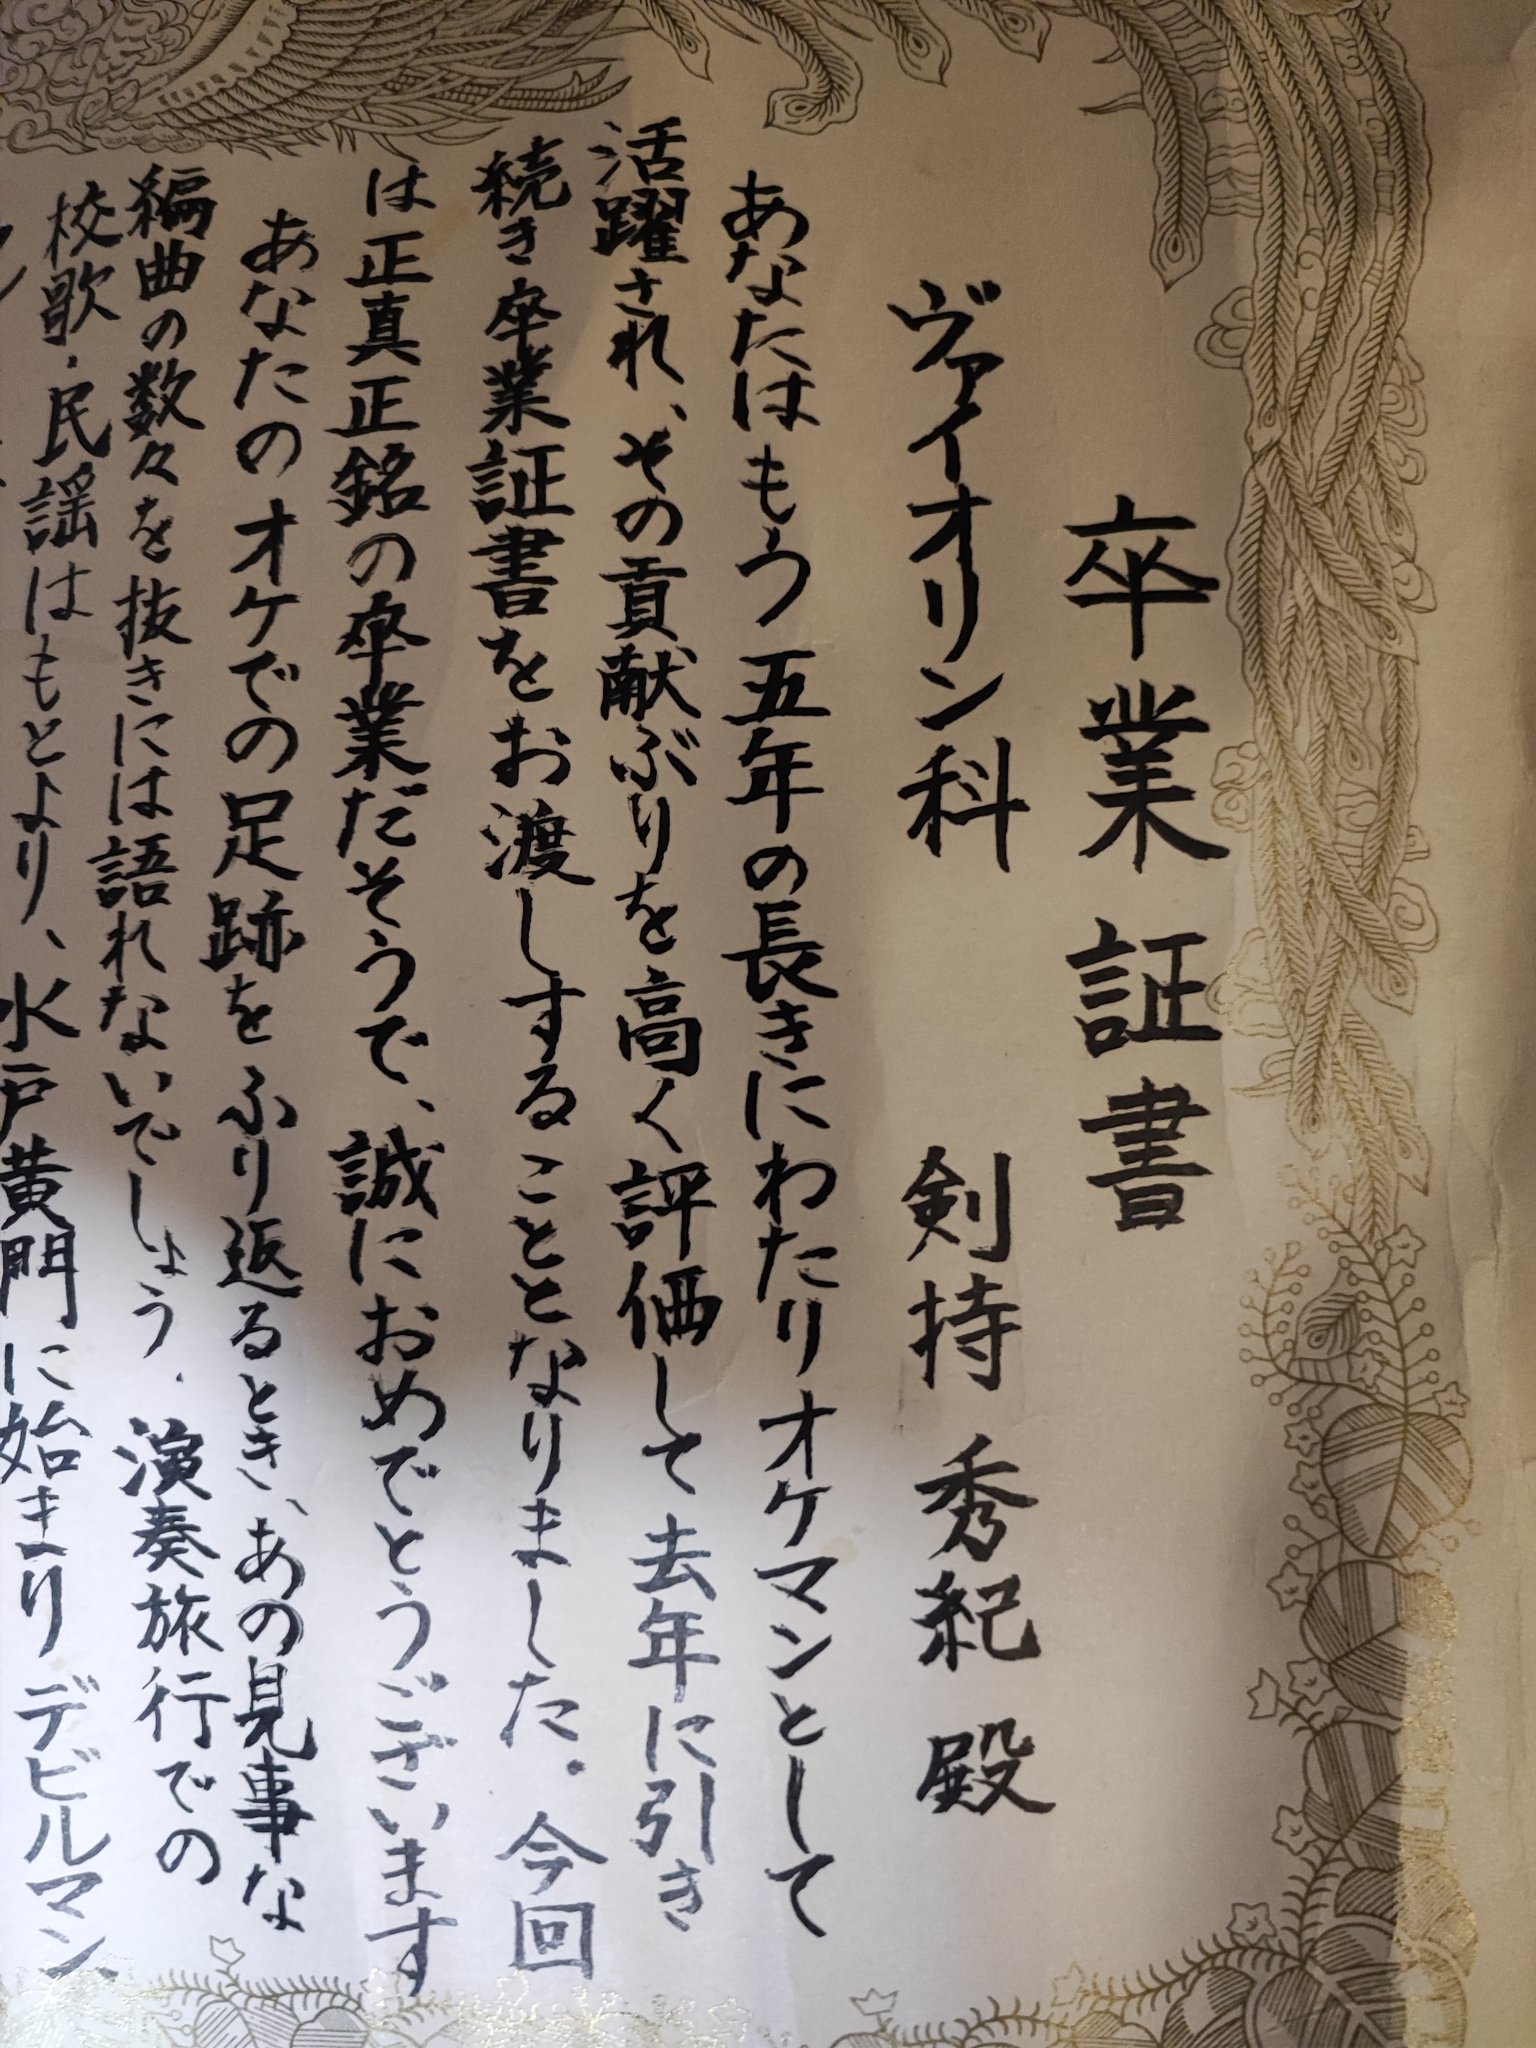 卒業証書
ヴァイオリン科 剣持秀紀殿
あなたはもう五年の長きにわたりオケマンとして
活躍され、その貢献ぶりを高く評価して去年に引き
続き卒業証書をお渡しすることとなりました。今回
は正真正銘の卒業だそうで、誠におめでとうございます
あなたのオケでの足跡をふり返るとき、あの見事な
編曲の数々を抜きには語れないでしょう。演奏旅行での
校歌・民謡はもとより、水戸黄門に始まりデビルマン、